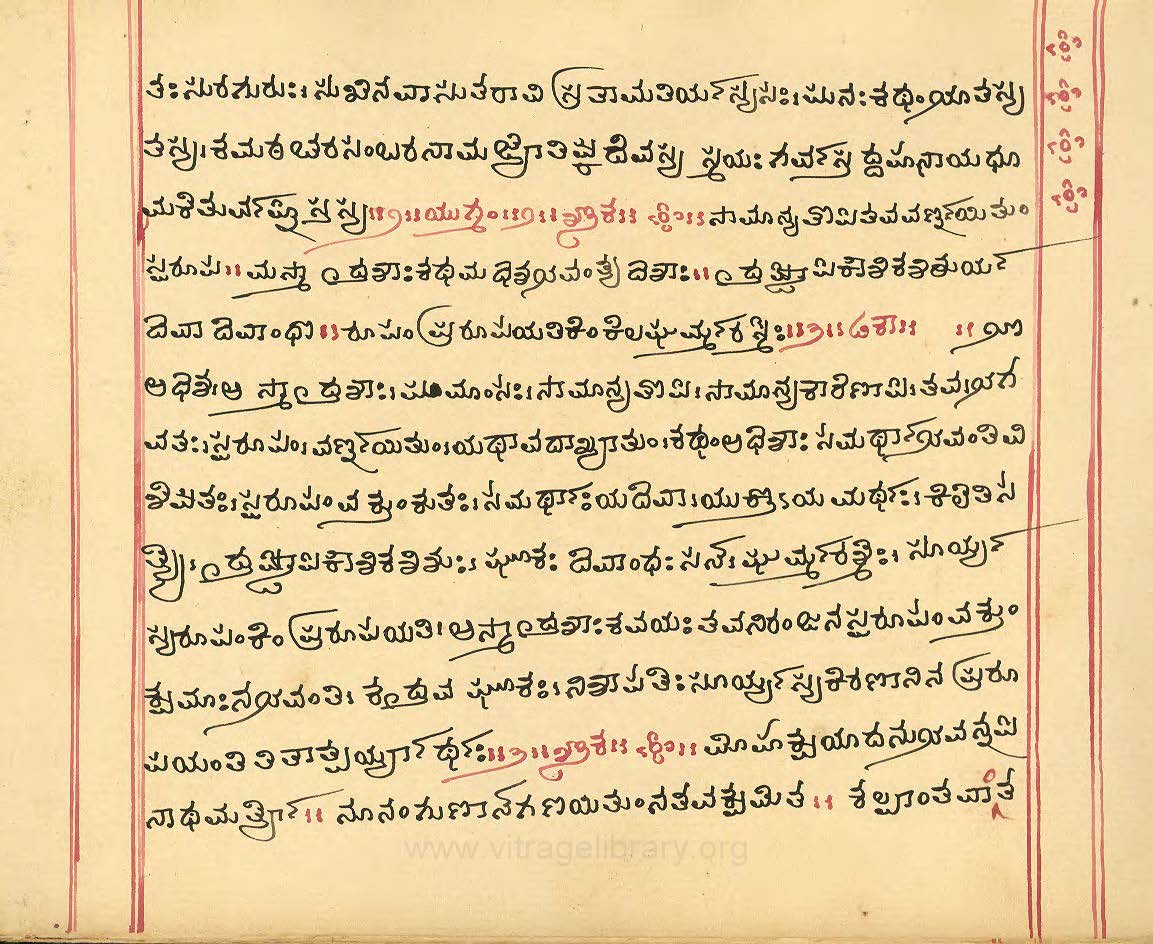 ತಃ ಸುರಗುರುಃ। ಸುಖಿನವಾಸುತರಾವಿ ಸ್ತ್ರತಾಮತಿರ್ಯಸ್ಯಸಃ। ಪುನಃ ಕಥಂಭೂತಸ್ಯ
ತಸ್ಯ। ಕಮಠಚರಸಂಬರನಾಮಜ್ಯೋತಿಷ್ಕದೇವಸ್ಯ ಸ್ಮಯಃ ಗರ್ವಸ್ತದ್ದಹನಾಯಧೂ
ಮಕೇತುರ್ವಹ್ನಿಸ್ತಸ್ಯ॥೨॥ಯುಗ್ಮಂ॥೨॥ಶ್ಲೋಕ॥ ಶ್ರೀ॥ ಸಾಮಾನ್ಯತೋಪಿತವವರ್ಣ್ಣಯಿತುಂ
ಸ್ವರೂಪ॥ಮಸ್ಮಾದೃಶಾಃ ಕಥಮಧೀಶಭವಂತ್ಯಧೀಶಾಃ॥ ಧೃಷ್ಟೋಪಿಕೌಶಿಕಶಿಶುರ್ಯ
ದಿವಾ ದಿವಾಂಧೋ॥ರೂಪಂ ಪ್ರರೂಪಯತಿಕಿಂಕಿಲಘರ್ಮ್ಮರಶ್ಮೇಃ॥೩॥ಟೀಕಾ॥ ॥ಭೋ
ಅಧೀಶ। ಅಸ್ಮಾದೃಶಾಃ। ಪುಮಾಂಸಃ। ಸಾಮಾನ್ಯತೋಪಿ। ಸಾಮಾನ್ಯಾಕಾರೇಣಾಪಿ। ತವ। ಭಗ
ವತಃ। ಸ್ವರೂಪಂ। ವರ್ಣ್ಣಯಿತುಂ। ಯಥಾವದಾಖ್ಯಾತುಂ। ಕಥಂಅಧೀಶಾಃ ಸಮರ್ಥಾಭವಂತಿವಿ
ಶೇಷತಃ। ಸ್ವರೂಪಂವಕ್ತುಂಕುತಃ। ಸಮರ್ಥಾಃಯದಿವಾ। ಯುಕ್ತೋಽಯಮರ್ಥಃ। ಕಿಲೇತಿಸ
ತ್ಯೇ। ಧೃಷ್ಟೋಪಿಕೌಶಿಕಶಿಶುಃ। ಘೂಕಃ ದಿವಾಂಧಃ ಸನ್। ಘರ್ಮ್ಮರಶ್ಮೇಃ। ಸೂರ್ಯ್ಯ
ಸ್ಯರೂಪಂಕಿಂಪ್ರರೂಪಯತಿ। ಅಸ್ಮಾದೃಶಾಃ ಕವಯಃ ತವನಿರಂಜನಸ್ವರೂಪಂವಕ್ತುಂ
ಕ್ಷಮಾಃನಭವಂತಿ। ಘೂಕಃ। ನಿಶಾಪತಿಃ ಸೂರ್ಯ್ಯಸ್ಯಕಿರಣಾನಿನಪ್ರರೂ
ಪಯಂತಿತಿತಾತ್ಪರ್ಯ್ಯಾರ್ಥಃ॥೩॥ಶ್ಲೋಕ॥ ಶ್ರೀ॥ ಮೋಹಕ್ಷಯಾದನುಭವನ್ನಪಿ
ನಾಥಮರ್ತ್ಯೋ॥ ನೂನಂಗುಣಾನ್ಗಣಯಿತುಂನತವಕ್ಷಮೇತ॥ ಕಲ್ಪಾಂತವಾಂತ